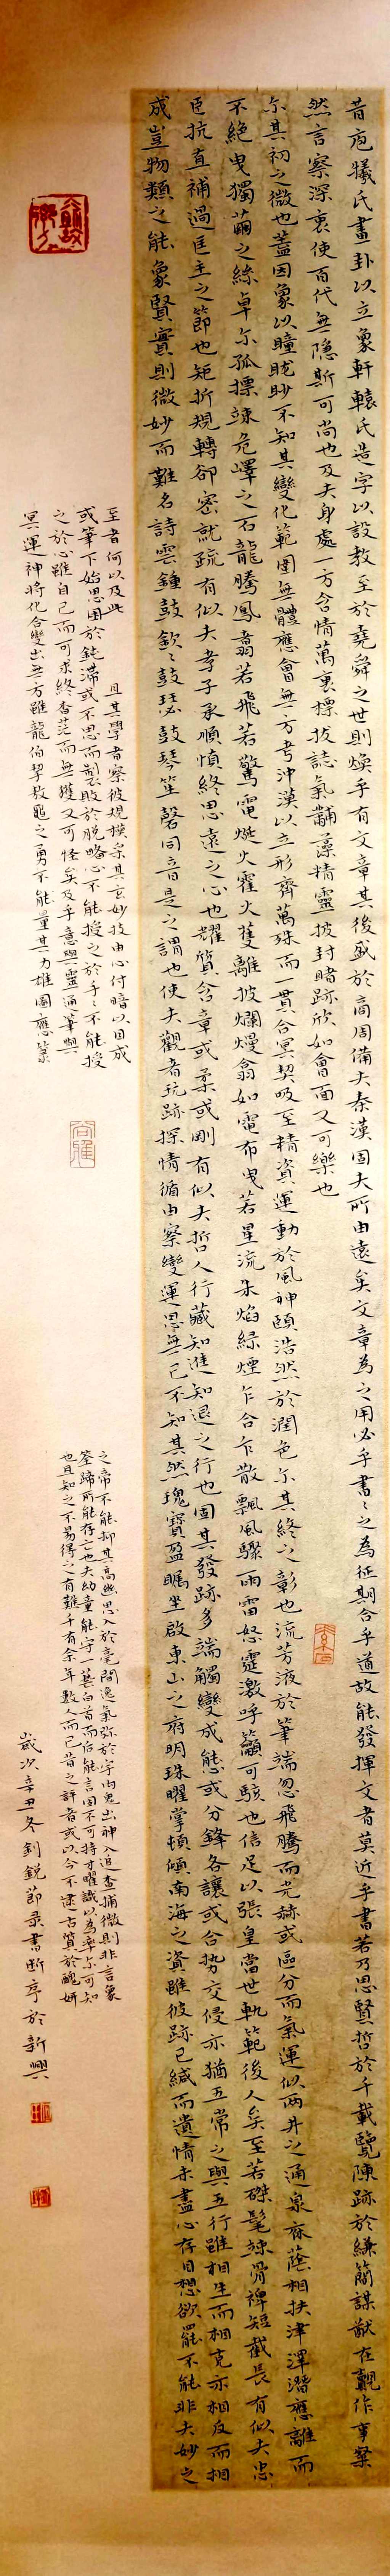 昔庖犧氏畫卦以立象軒轅氏造字以設教至於堯舜之世則煥乎有文章其後盛於商周備夫秦漢固夫所由遠矣文章為之用必乎書〻之為征期合乎道故能發揮文者莫近乎書若乃思賢哲於千載覽陳跡於縑簡謀猷在覿作事粲
然言察深衷使百代無隱斯可尚也及夫身處一方含情萬裏標拔誌氣黼藻精靈披封睹跡欣如會面又可樂也
尔其初之微也蓋因象以瞳眬眇不知其變化範圍無體應會無方考沖漠以立形齊萬殊而一貫合冥契吸至精資運動於風神頤浩然於潤色尔其終之彰也流芳液於筆端忽飛騰而光赫或區分而氣運似兩井之通泉麻蔭相扶津澤潛應離而
不絕曳獨繭之絲卓尔孤摽竦危嶂之石龍騰鳳翥若飛若驚電烻火霍火蒦離披爛熳翕如雲布曳若星流朱焰綠煙乍合乍散飄風驟雨雷怒霆激呼籲可駭也信足以張皇當世軌範後人矣至若磔髦竦骨裨短截長有似夫忠
臣抗直補過匡主之節也矩折規轉卻密就疏有似夫孝子承順慎終思遠之心也耀質含章或柔或剛有似夫哲人行藏知進知退之行也固其發跡多端觸變成態或分鋒各讓或合势交侵亦猶五常之與五行雖相生而相克亦相反而相
成豈物類之能象賢實則微妙而難名詩雲鍾鼓欽〻鼓瑟鼓琴笙磬同音是之謂也使夫觀者玩跡探情循由察變運思無已不知其然瑰寶盈矚坐啟東山之府明珠曜掌頓傾南海之資雖彼跡已緘而遺情未盡心存目想欲罷不能非夫妙之
至者何以及此 且其學者察彼規模采其玄妙技由心付暗以目成
或筆下始思困於鈍滯或不思而製敗於脫略心不能授之於手〻不能授
之於心雖自己而可求終杳茫而無獲又可怪矣及乎意與靈通筆與
冥運神將化合變出無方雖龍伯挈鰲之勇不能量其力雄圖應箓
之帝不能抑其高幽思入於毫間逸氣弥於宇內鬼出神入追查捕微則非言象
筌蹄所能存亡也夫幼童能守一藝白首而后能言固不可恃才曜識以為率尔可知
也且知之不易得之有難千有余年數人而已昔之評者或以今不逮古質於醜妍
歲次辛丑冬釗銳節录書斷序於新興
尚雅